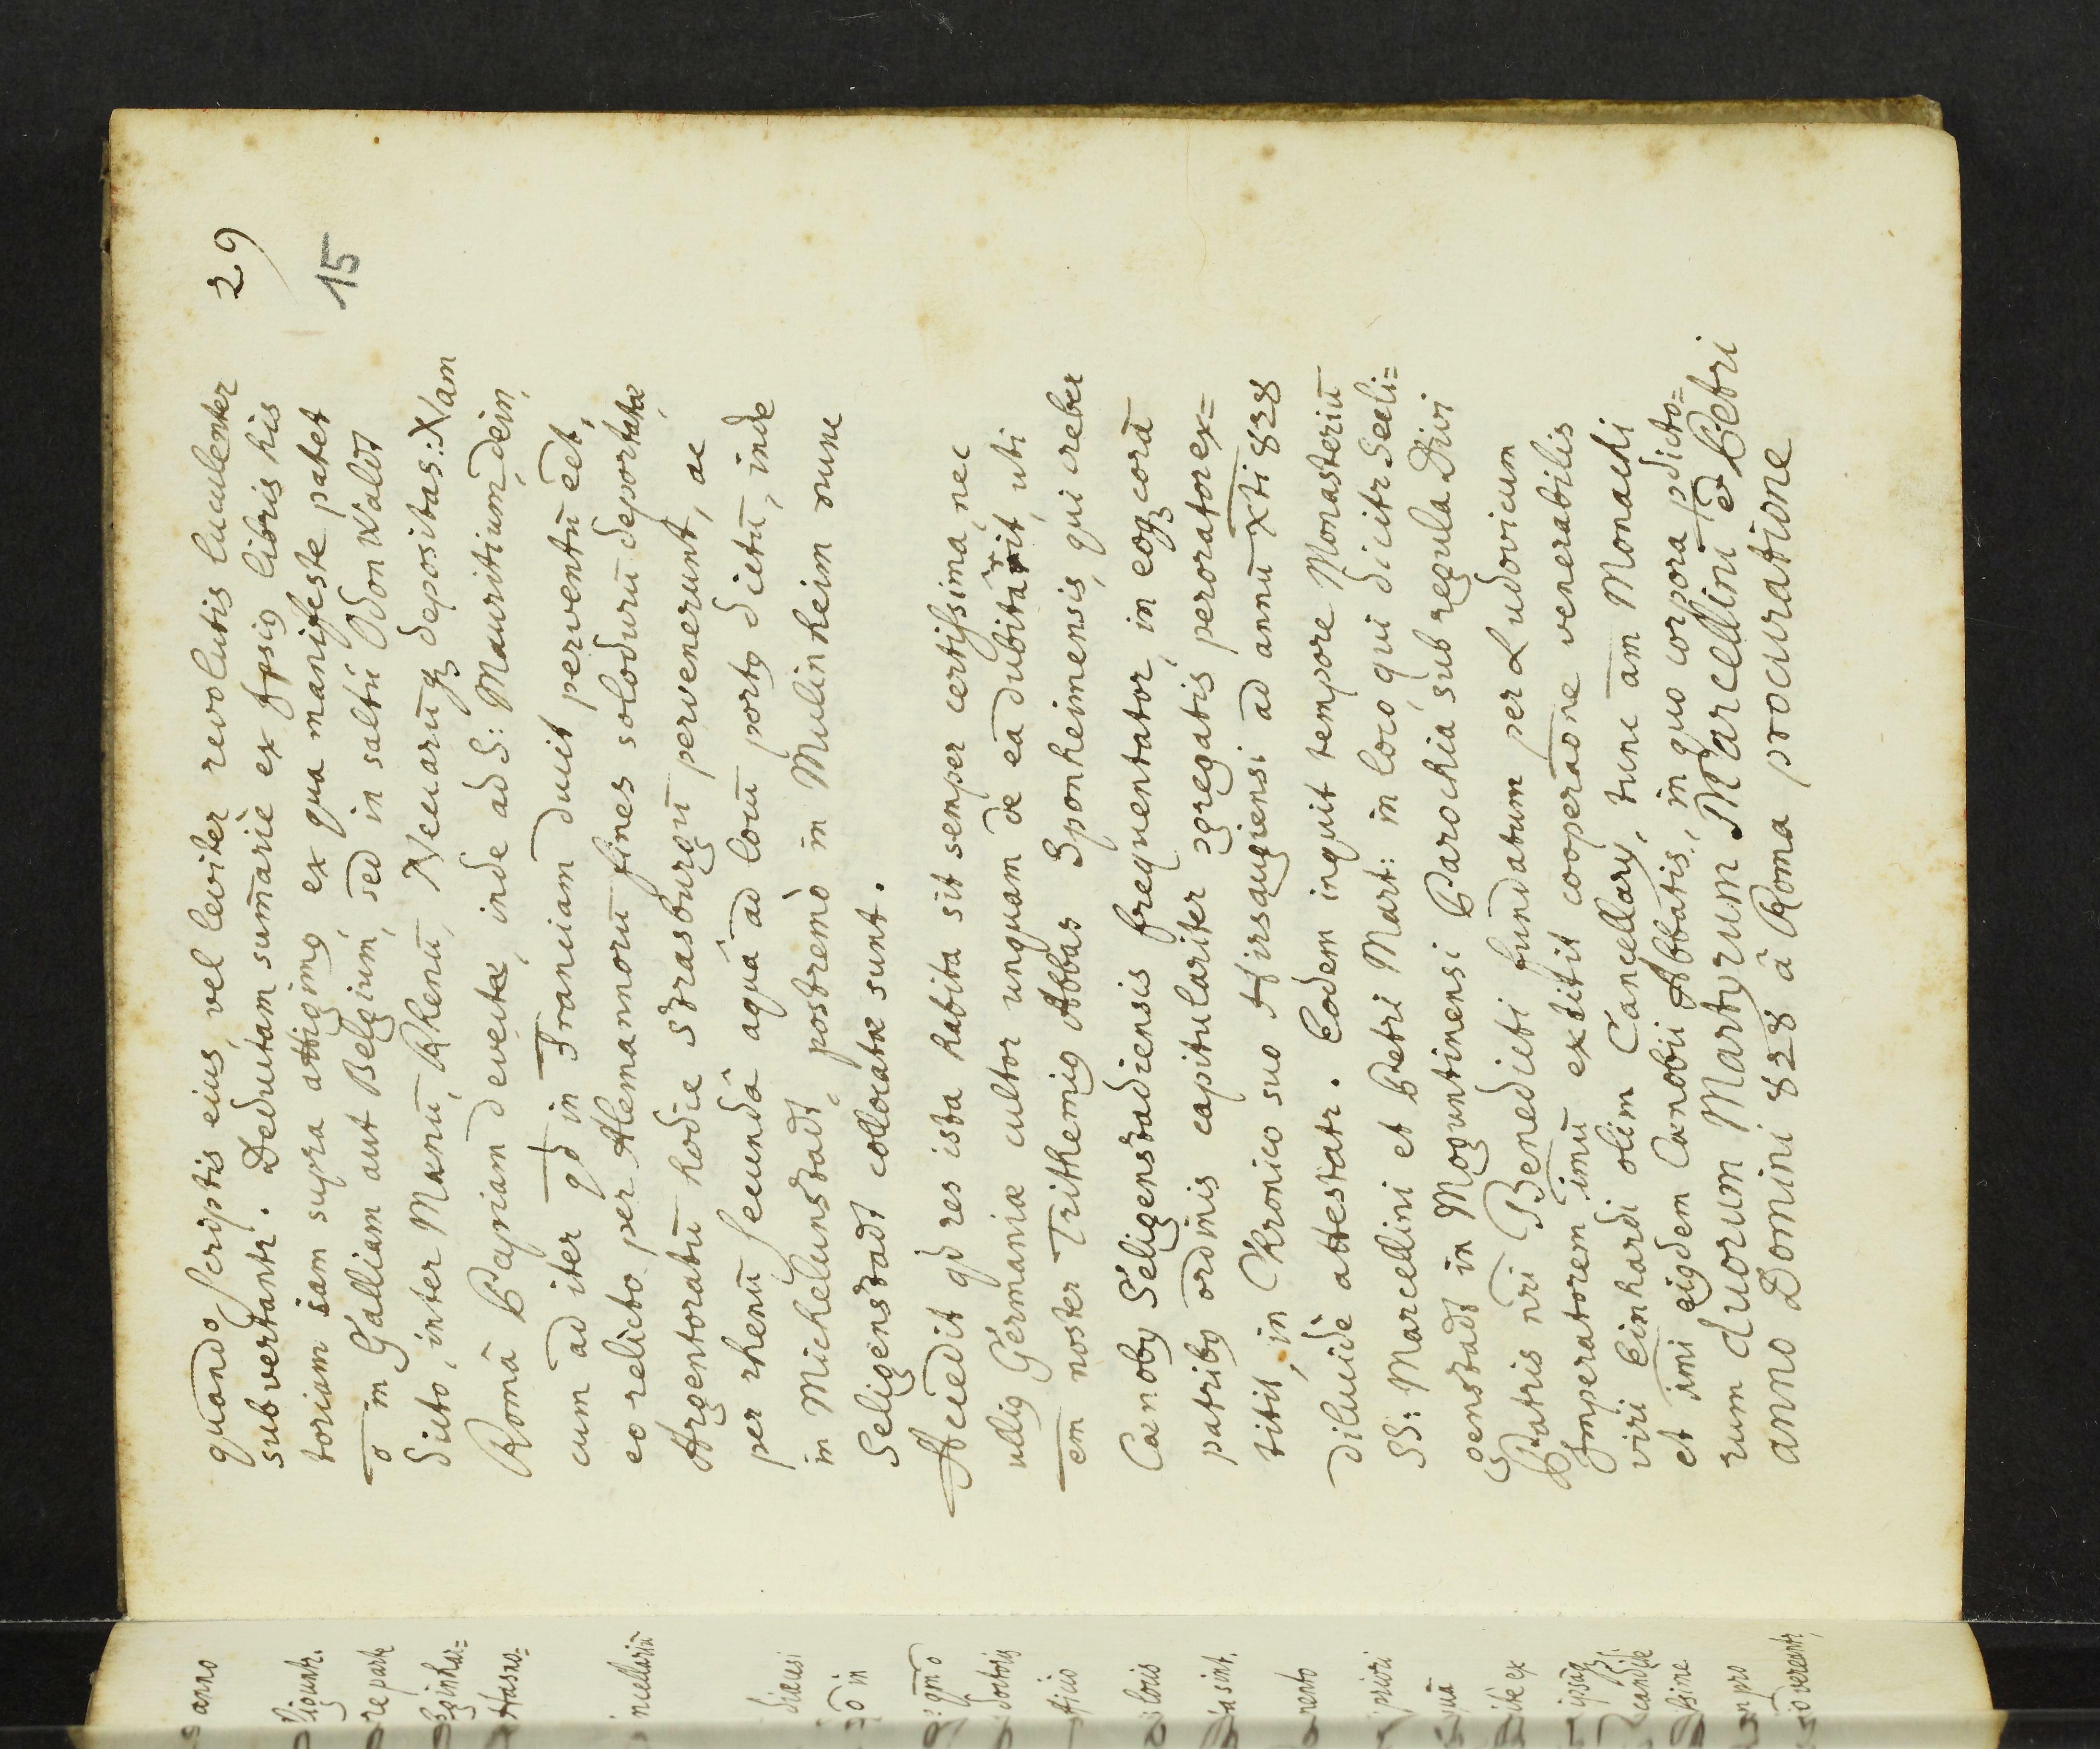 29
15
quando scriptis eius, vel leviter revolutis luculenter
subvertantr. Deductam sum̄ariè ex ipsiꝰ libris his
toriam iam supra attigimꝰ, ex qua manifeste patet
ō in Galliam aut Belgium, sed in saltū Odonwaldt
dicto, inter Maenū, Rhenū, Neccarūqꝫ depositas: Nam
Româ Papiam devectæ, inde ad S: Mauritium, dein,
cum ad iter qd in Franciam ducit perventū eet,
eo relicto per Alemannorū fines solodurū deportatæ
Argentoratū hodie Strasburgū pervenerunt, ac
per rhenū secundâ aquâ ad locū portꝰ dictū, inde
in Michelunstadt, postremò in Mulinheim nunc
Seligenstadt collocatæ sunt.
Accedit qd res ista habita sit semper certissima, nec
ullig Germaniæ cultor unquam de eâ dubitârit, uti
em noster Trithemiꝰ Abbas Sponheimensis, qui creber
Cænobꝫ Seligenstadiensis frequentator, in eoqꝫ corā
patribꝰ ordinis capitulariter ꝯgregatis perorator ex=
titit, in Chronico suo Hirsaugiensi ad annū Xti 828
dilucidè attestatr. Eodem inquit tempore Monasteriū
SS: Marcellini et Petri Mart: in loco, qui dicitr Seeli=
genstadt in Moguntinensi Parochia sub regula Divi
Patris nri Benedicti fundatum per Ludovicum
Imperatorem imū extitit cooperaōne venerabilis
viri Einhardi olim Cancellarꝫ, tunc am Monachi
et imi eiꝰdem Cænobii Abbatis, in quo corpora pdicto=
rum duorum Martyrum Marcellini et Petri
anno Domini 828 â Roma procuratione
anno
repate
Eginhar=
Hasno=
diausi
in
doctoris
ficio
lois
sint.
nento
priori
quā
ex
sine
pro
verentr